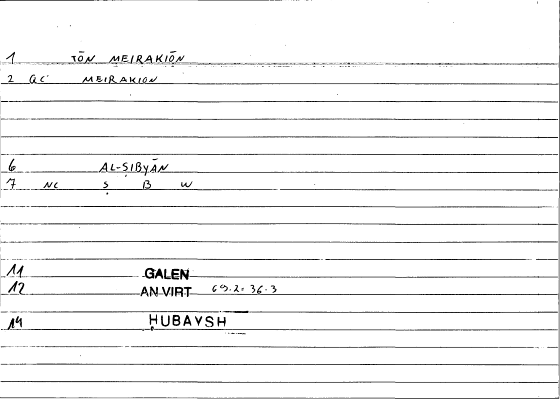 1 TŌN MEIRAKIŌN
2 GC MEIRAKION
6 AL-ṢIBYĀN
7 NC Ṣ B W
11 GALEN
12 AN VIRT 69.2=36.3
14 ḤUBAYSH